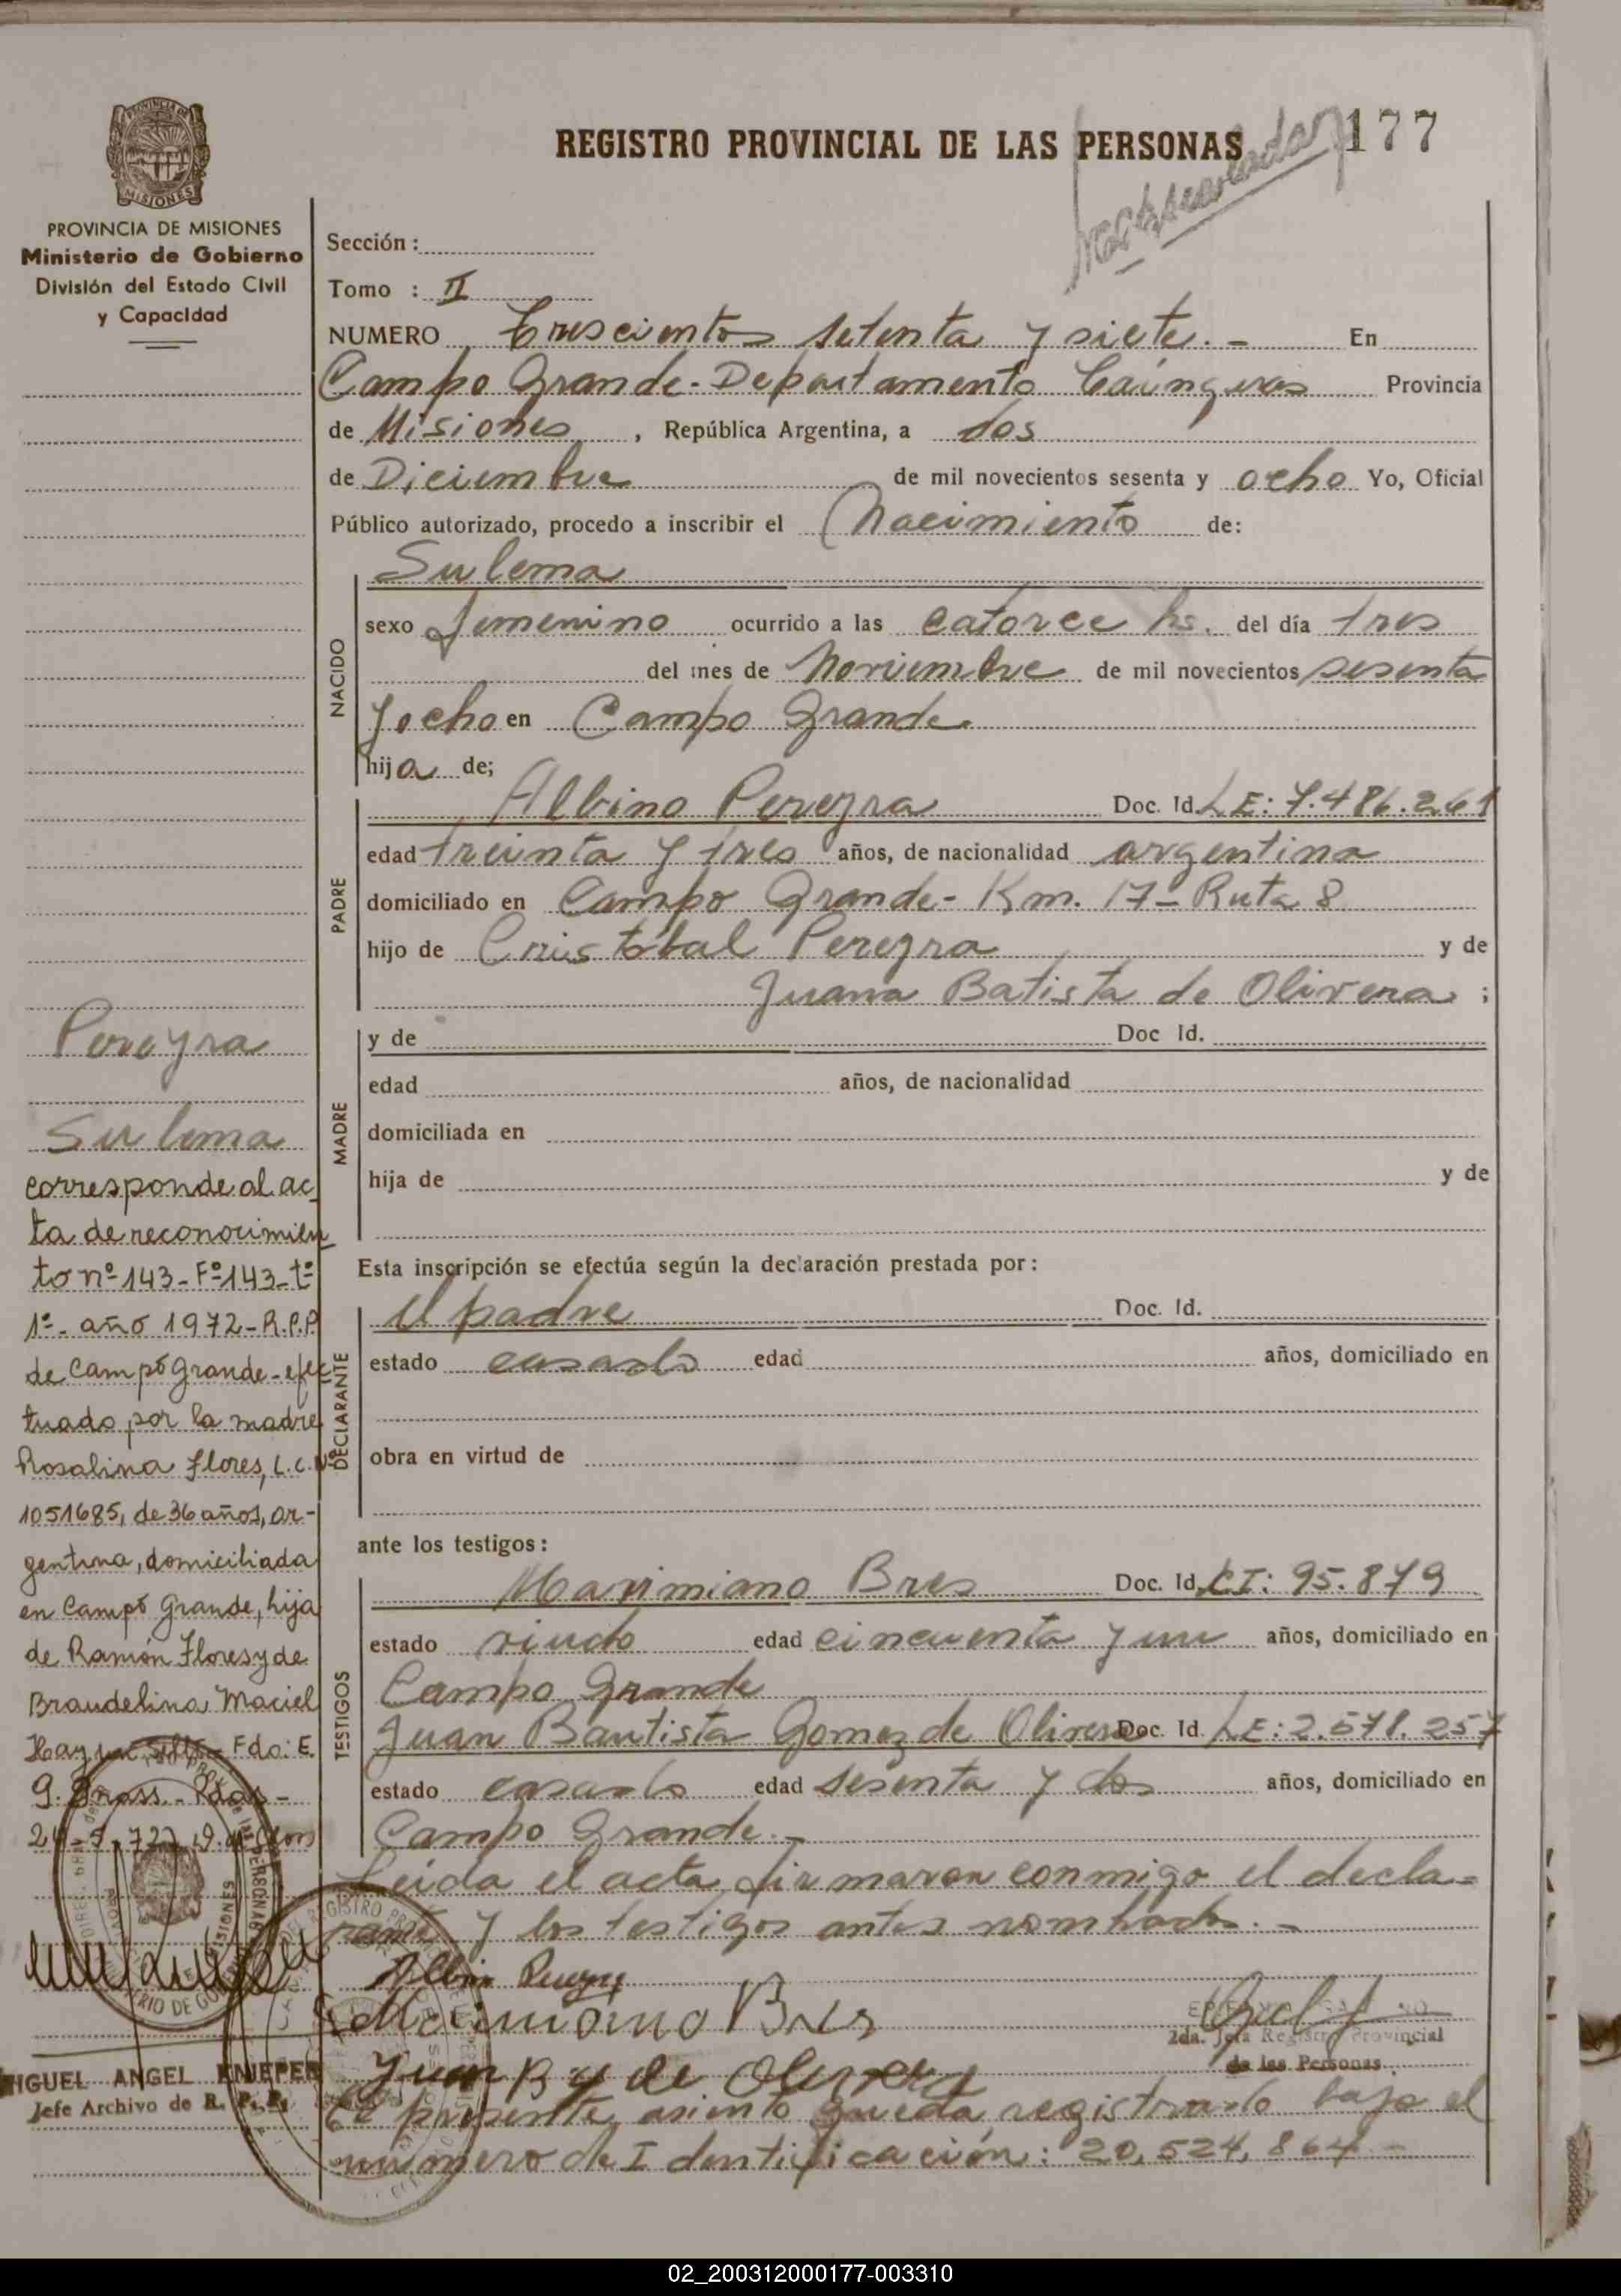 REGISTRO PROVINCIAL DE LAS PERSONAS 177
PROVINCIA DE MISIONES
Ministerio de Gobierno
División del Estado Civil
y Capacidad
Sección :
Tomo : II
NUMERO Trescientos setenta y siete. - En
Campo Grande - Departamento Cainguas Provincia
de Misiones , República Argentina, a dos
de Diciembre de mil novecientos sesenta y ocho Yo, Oficial
Público autorizado, procedo a inscribir el Nacimiento de:
Sulema
NACIDO
sexo femenino ocurrido a las catorce hs. del día tres
del mes de Noviembre de mil novecientos sesenta
y ocho en Campo Grande
hija de;
PADRE
Albino Pereyra Doc. Id. LE: 7.486.261
edad treinta y tres años, de nacionalidad argentina
domiciliado en Campo Grande - Km. 17 - Ruta 8
hijo de Cristobal Pereyra y de
Juana Batista de Olivera ;
MADRE
y de Doc Id.
edad años, de nacionalidad
domiciliada en
hija de y de
Esta inscripción se efectúa según la declaración prestada por :
DECLARANTE
El padre Doc. Id.
estado casado edad años, domiciliado en
obra en virtud de
ante los testigos :
TESTIGOS
Maximiano Bres Doc. Id. CI: 95.879
estado viudo edad cincuenta y un años, domiciliado en
Campo Grande
Juan Bautista Gomez de Olivera Doc. Id. LE: 2.578.257
estado casado edad sesenta y dos años, domiciliado en
Campo Grande. -
Leida el acta firmaron conmigo el decla-
rante y los testigos antes nombrados. -
Maximiano Bres
2da. Jefa Registro Provincial
de las Personas
Juan B g de Olivera
El presente asiento queda registrado bajo el
numero de Identificación: 20.524.864 -
Pereyra
Sulema
corresponde al ac
ta de reconocimien
to nº 143 - Fº 143 - tº
1º - año 1972 - R.P.P
de Campo Grande - efec
tuado por la madre
Rosalina Flores, L.C. Nº
1051685, de 36 años, ar-
gentina, domiciliada
en Campo Grande, hija
de Ramón Flores y de
Braudelina Maciel
Hay un sello Fdo: E.
MIGUEL ANGEL
Jefe Archivo de R. P. P.
02_200312000177-003310